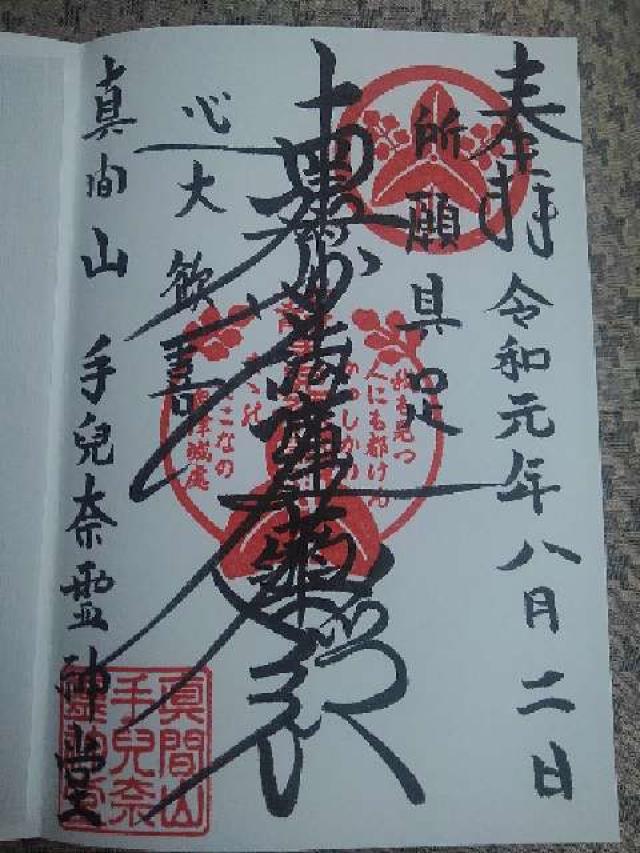 奉拝 令和元年八月二日
所願具足
南無妙法蓮華経
心大歓喜
真間山 手兒奈霊神堂
我も見つ
人にも都げん
かつしかの
こなの
奥津城處
真間山
手兒奈
靈神堂